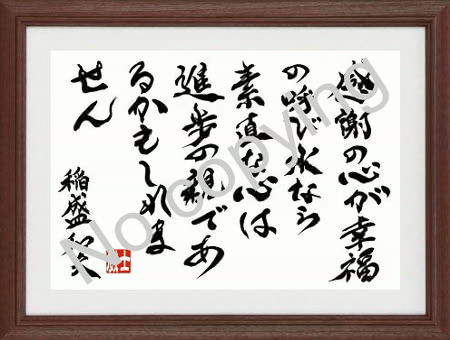 感謝の心が幸福
の呼び水なら
素直な心は
進歩の親であ
るかもしれま
せん
稲盛和夫
No copying